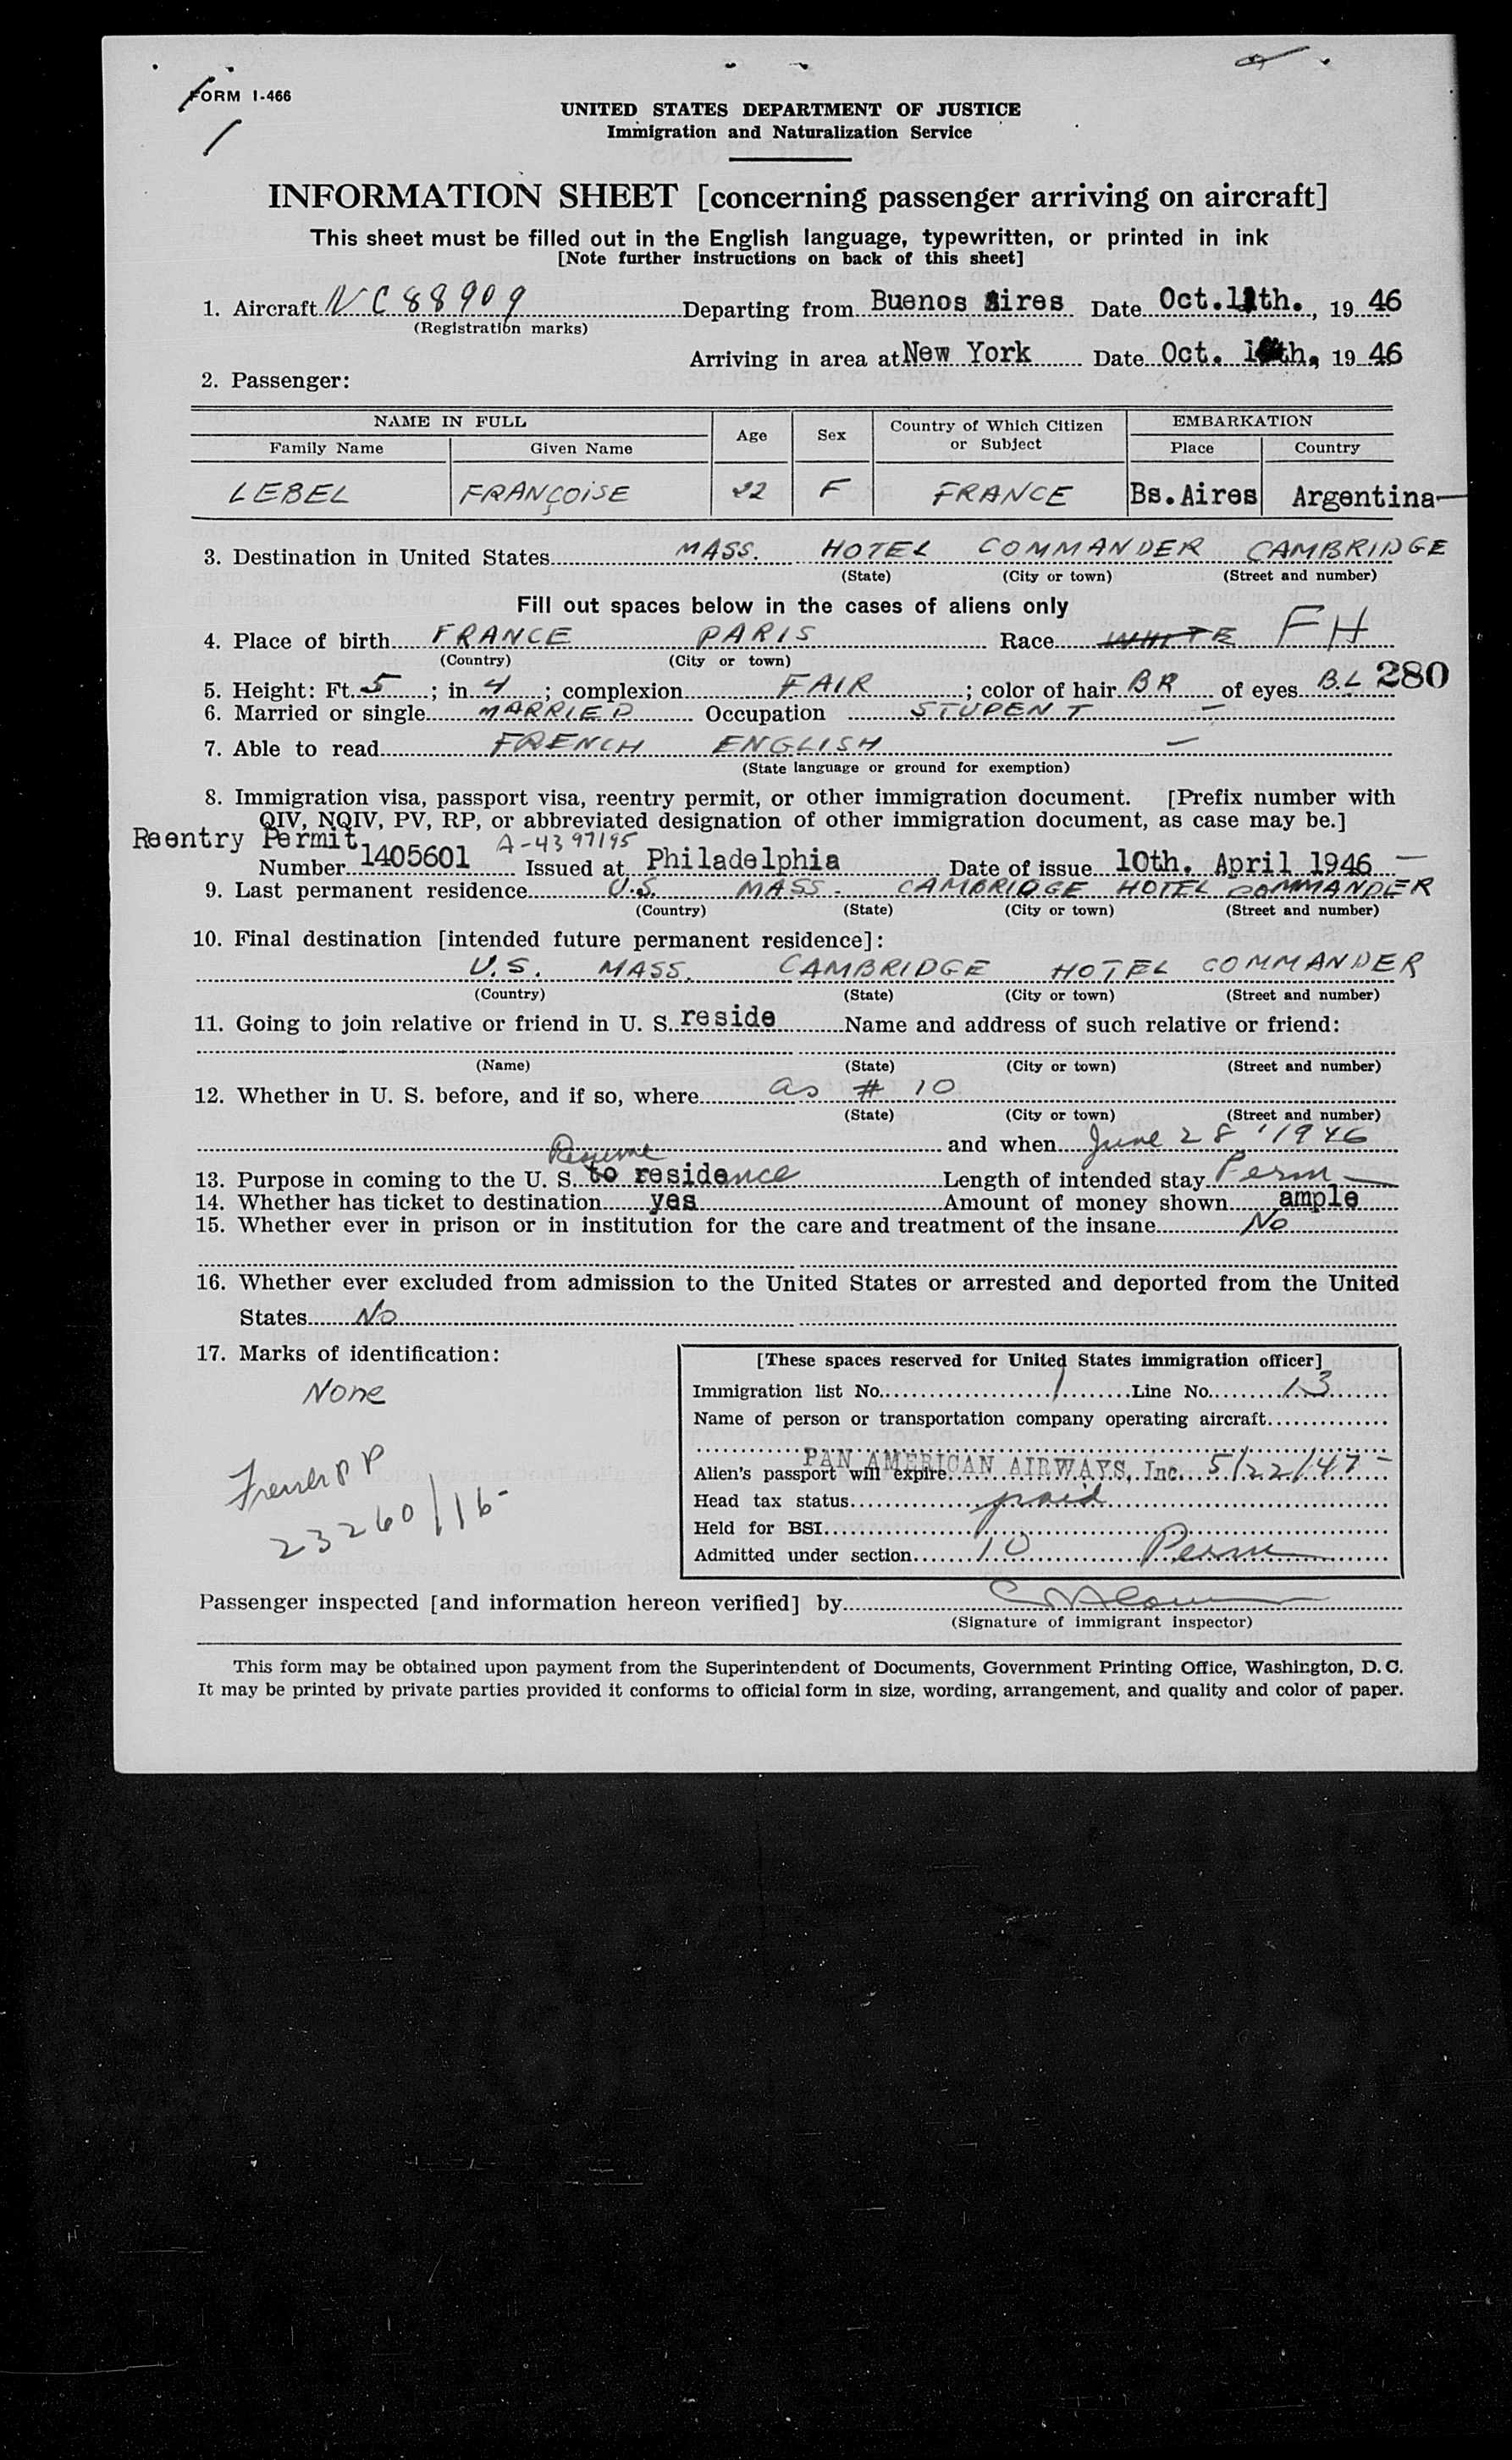 FORM I-466
UNITED STATES DEPARTMENT OF JUSTICE
Immigration and Naturalization Service
INFORMATION SHEET [concerning passenger arriving on aircraft]
This sheet must be filled out in the English language, typewritten, or printed in ink
[Note further instructions on back of this sheet]
1. Aircraft NC88909 Departing from Buenos Aires Date Oct.11th., 1946
(Registration marks)
Arriving in area at New York Date Oct. 1 th, 1946
2. Passenger:
NAME IN FULL Age Sex Country of Which Citizen or Subject EMBARKATION
Family Name Given Name Place Country
LEBEL FRANÇOISE 22 F FRANCE Bs.Aires Argentina
3. Destination in United States MASS. HOTEL COMMANDER CAMBRIDGE
(State) (City or town) (Street and number)
Fill out spaces below in the cases of aliens only
4. Place of birth FRANCE PARIS Race WHITE FH
(Country) (City or town)
5. Height: Ft. 5; in. 4; complexion FAIR; color of hair BR of eyes BL 280
6. Married or single MARRIED Occupation STUDENT
7. Able to read FRENCH ENGLISH
(State language or ground for exemption)
8. Immigration visa, passport visa, reentry permit, or other immigration document. [Prefix number with
QIV, NQIV, PV, RP, or abbreviated designation of other immigration document, as case may be.]
Reentry Permit A-4397195
Number 1405601 Issued at Philadelphia Date of issue 10th. April 1946
9. Last permanent residence U.S. MASS. CAMBRIDGE HOTEL COMMANDER
(Country) (State) (City or town) (Street and number)
10. Final destination [intended future permanent residence]:
U.S. MASS. CAMBRIDGE HOTEL COMMANDER
(Country) (State) (City or town) (Street and number)
11. Going to join relative or friend in U. S. reside Name and address of such relative or friend:
(Name) (State) (City or town) (Street and number)
12. Whether in U. S. before, and if so, where as # 10
(State) (City or town) (Street and number)
and when June 28 '1946
Resume
13. Purpose in coming to the U. S. to residence Length of intended stay Perm
14. Whether has ticket to destination yes Amount of money shown ample
15. Whether ever in prison or in institution for the care and treatment of the insane No
16. Whether ever excluded from admission to the United States or arrested and deported from the United
States No
17. Marks of identification:
None
French PP
23260/16
[These spaces reserved for United States immigration officer]
Immigration list No. 1 Line No. 13
Name of person or transportation company operating aircraft
PAN AMERICAN AIRWAYS, Inc.
Alien's passport will expire 5/22/47
Head tax status paid
Held for BSI
Admitted under section 10 Perm
Passenger inspected [and information hereon verified] by
(Signature of immigrant inspector)
This form may be obtained upon payment from the Superintendent of Documents, Government Printing Office, Washington, D. C.
It may be printed by private parties provided it conforms to official form in size, wording, arrangement, and quality and color of paper.